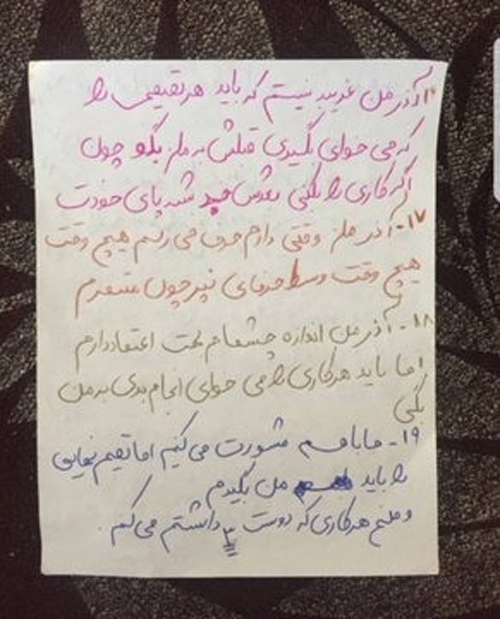 آذر من غریبه نیستم که باید هر تصمیمی را
که می خوای بگیری قبلش به من بگو چون
اگر کاری را بکنی بعدش چه شد پای خودت
۱۷- آذر من وقتی دارم حرف می زنم هیچ وقت
هیچ وقت وسط حرفای نپر چون متنفرم
۱۸- آذر من اندازه چشمام بهت اعتماد دارم
اما باید هر کاری را می خوای انجام بدی به من
بگی
۱۹- ما باهم مشورت می کنیم اما تصمیم نهایی
را باید من بگیرم
و منم هر کاری که دوست داشتم می کنم.